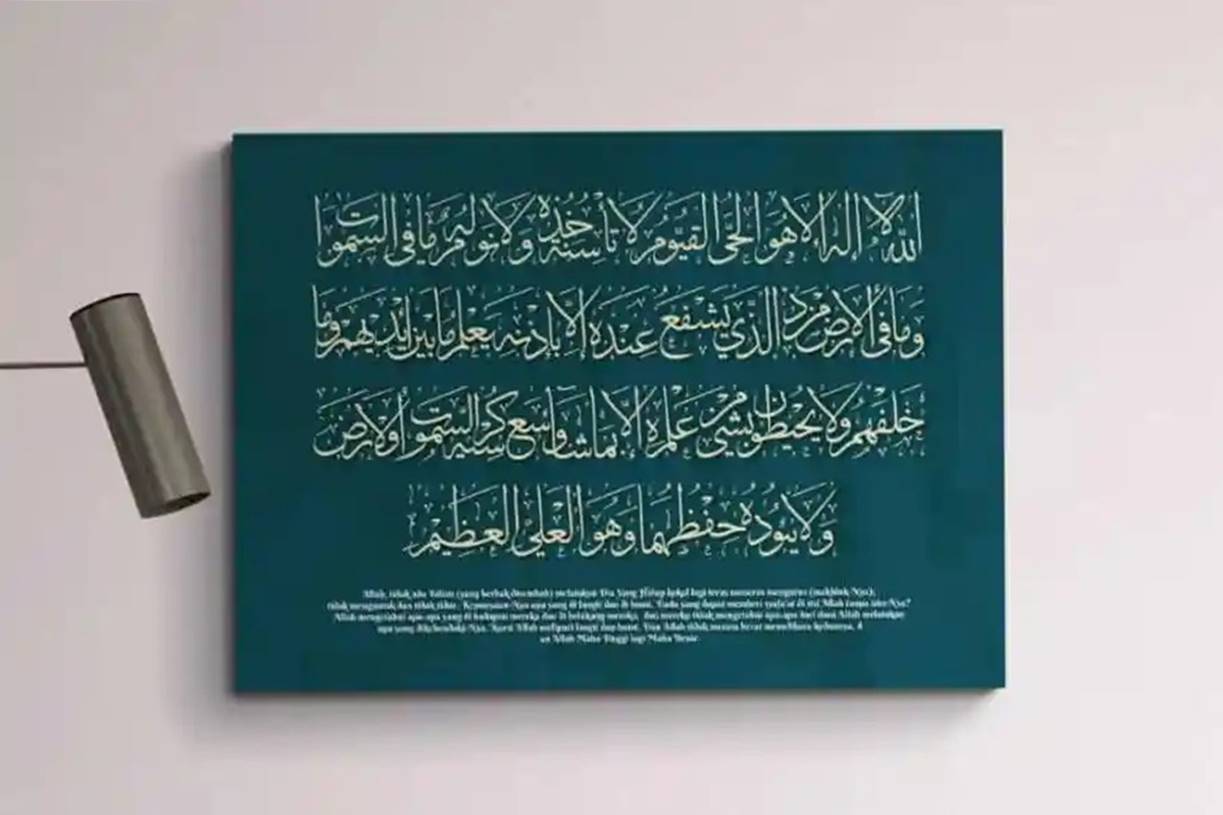 الله لا اله الا هو الحي القيوم لا تأخذه سنة ولا نوم له ما في السموات
وما في الارض من ذ الذي يشفع عنده الا باذنه يعلم ما بين ايديهم وما
خلفهم ولا يحيطون بشيء من علمه الا بما شا واسع كرسيه السموات والارض
ولا يوده حفظهما وهو العلي العظيم
Allah, tidak ada Tuhan (yang berhak disembah) melainkan Dia Yang Hidup kekal lagi terus menerus mengurus (makhluk-Nya);
tidak mengantuk dan tidak tidur. Kepunyaan-Nya apa yang di langit dan di bumi. Tiada yang dapat memberi syafa'at di sisi Allah tanpa izin-Nya?
Allah mengetahui apa-apa yang di hadapan mereka dan di belakang mereka, dan mereka tidak mengetahui apa-apa dari ilmu Allah melainkan
apa yang dikehendaki-Nya. Kursi Allah meliputi langit dan bumi. Dan Allah tidak merasa berat memelihara keduanya, d
an Allah Maha Tinggi lagi Maha Besar.